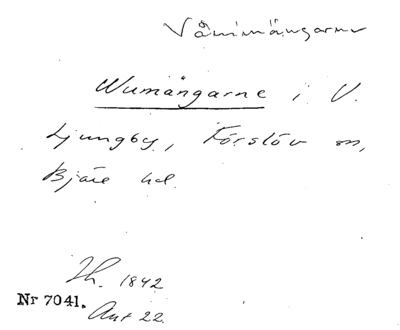 Våmmängarne
Wumängarne i V.
Ljungby, Förslöv sn,
Bjäre hd.
Lh. 1842
Nr 7041.
Akt 22.